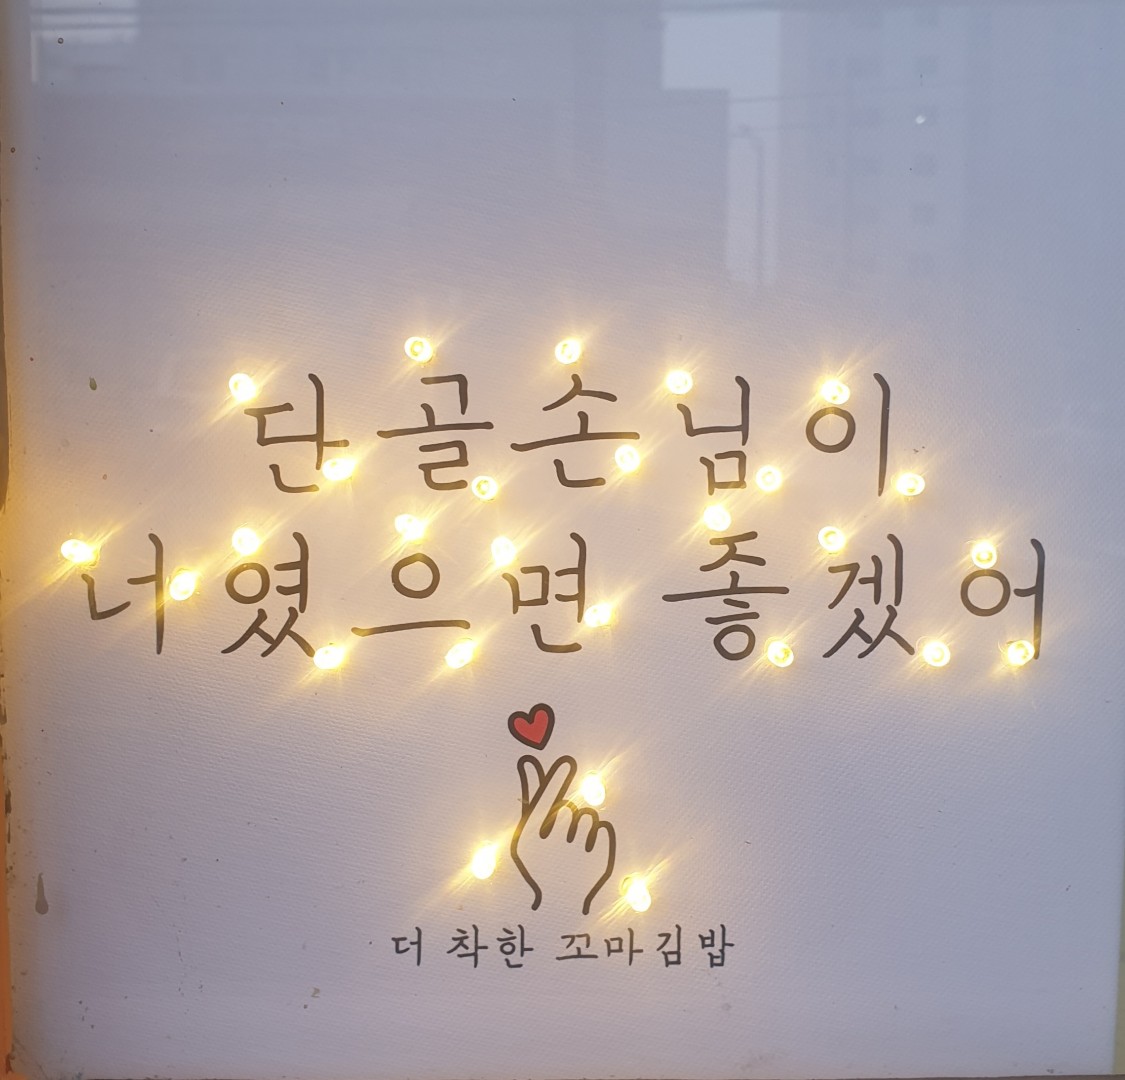 단골손님이
너였으면 좋겠어
더 착한 꼬마김밥